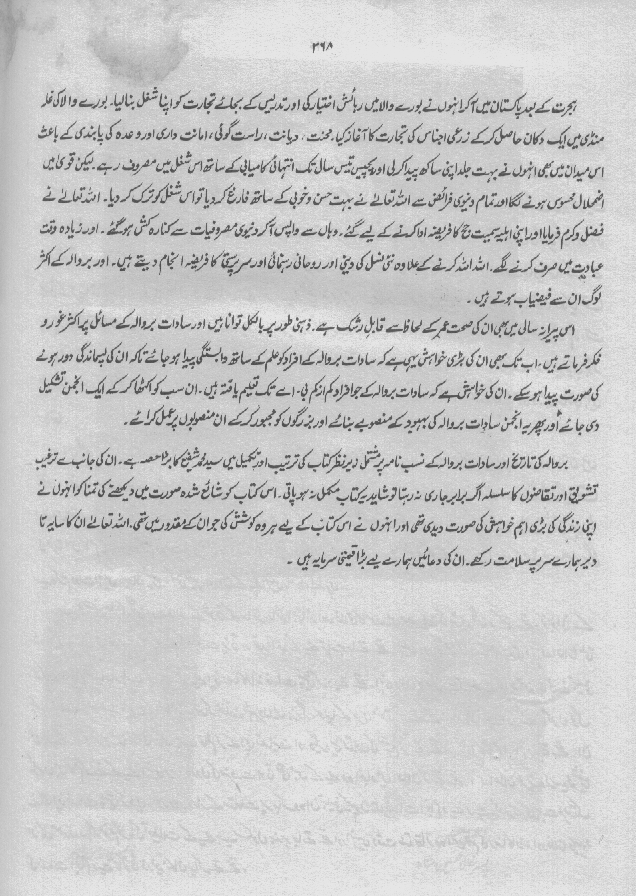 ۳۶۸
ہجرت کے بعد پاکستان میں آکر انہوں نے بورے والا میں رہائش اختیار کی اور تدریس کے بجائے تجارت کو اپنا شغل بنالیا۔ بورے والا کی غلہ
منڈی میں ایک دکان حاصل کر کے زرعی اجناس کی تجارت کا آغاز کیا۔ محنت، دیانت، راست گوئی، امانت داری اور وعدہ کی پابندی کے باعث
اس میدان میں بھی انہوں نے بہت جلد اپنی ساکھ پیدا کر لی اور پچیس تیس سال تک انتہائی کامیابی کے ساتھ اس شغل میں مصروف رہے۔ لیکن قویٰ میں
اضمحلال محسوس ہونے لگا اور تمام دنیوی فرائض سے اللہ تعالےٰ نے بہت حسن و خوبی کے ساتھ فارغ کر دیا تو اس شغل کو ترک کر دیا۔ اللہ تعالےٰ نے
فضل و کرم فرمایا اور اپنی اہلیہ سمیت حج کا فریضہ ادا کرنے کے لیے گئے۔ وہاں سے واپس آکر دنیوی مصروفیات سے کنارہ کش ہو گئے۔ اور زیادہ وقت
عبادت میں صرف کرنے لگے۔ اللہ اللہ کرنے کے علاوہ نئی نسل کی دینی اور روحانی رہنمائی اور سرپرستی کا فریضہ انجام دیتے ہیں۔ اور بروالہ کے اکثر
لوگ ان سے فیضیاب ہوتے ہیں۔
اس پیرانہ سالی میں بھی ان کی صحت عمر کے لحاظ سے قابلِ رشک ہے۔ ذہنی طور پر بالکل توانا ہیں اور سادات بروالہ کے مسائل پر اکثر غور و
فکر فرماتے ہیں۔ اب تک بھی ان کی بڑی خواہش یہی ہے کہ سادات بروالہ کے افراد کو علم کے ساتھ وابستگی پیدا ہو جائے تاکہ ان کی پسماندگی دور ہونے
کی صورت پیدا ہو سکے۔ ان کی خواہش ہے کہ سادات بروالہ کے جو افراد کم از کم بی۔ اے تک تعلیم یافتہ ہیں۔ ان سب کو اکٹھا کر کے ایک انجمن تشکیل
دی جائے اور پھر یہ انجمن سادات بروالہ کی بہبود کے منصوبے بنائے اور بزرگوں کو مجبور کر کے ان منصوبوں پر عمل کرائے۔
بروالہ کی تاریخ اور سادات بروالہ کے نسب نامہ پر مشتمل زیرِ نظر کتاب کی ترتیب اور تکمیل میں سید محمد شفیع کا بڑا حصہ ہے۔ ان کی جانب سے ترغیب
تشویق اور تقاضوں کا سلسلہ اگر برابر جاری نہ رہتا تو شاید یہ کتاب مکمل نہ ہو پاتی۔ اس کتاب کو شائع شدہ صورت میں دیکھنے کی تمنا کو انہوں نے
اپنی زندگی کی بڑی اہم خواہش کی صورت دیدی تھی اور انہوں نے اس کتاب کے لیے ہر وہ کوشش کی جو ان کے مقدور میں تھی۔ اللہ تعالےٰ ان کا سایہ تا
دیر ہمارے سر پر سلامت رکھے۔ ان کی دعائیں ہمارے لیے بڑا قیمتی سرمایہ ہیں۔